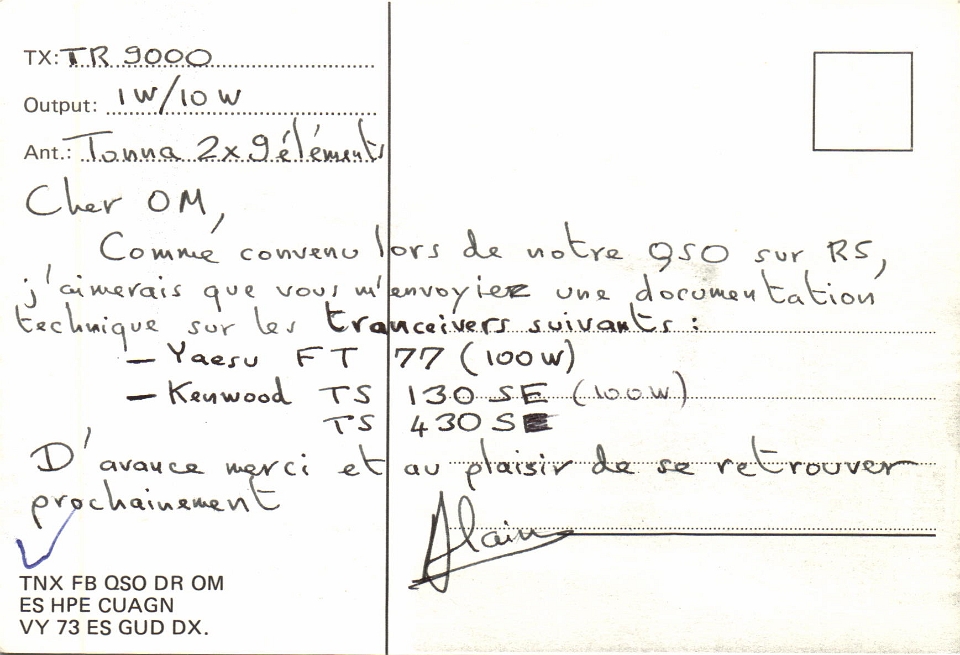 TX: TR 9000
Output: 1W/10W
Ant.: Tonna 2x9éléments
Cher OM,
Comme convenu lors de notre QSO sur RS,
j'aimerais que vous m'envoyiez une documentation
technique sur les tranceivers suivants :
— Yaesu FT 77 (100W)
— Kenwood TS 130 SE (100W)
TS 430 S
D'avance merci et au plaisir de se retrouver
prochainement
Alain
TNX FB QSO DR OM
ES HPE CUAGN
VY 73 ES GUD DX.